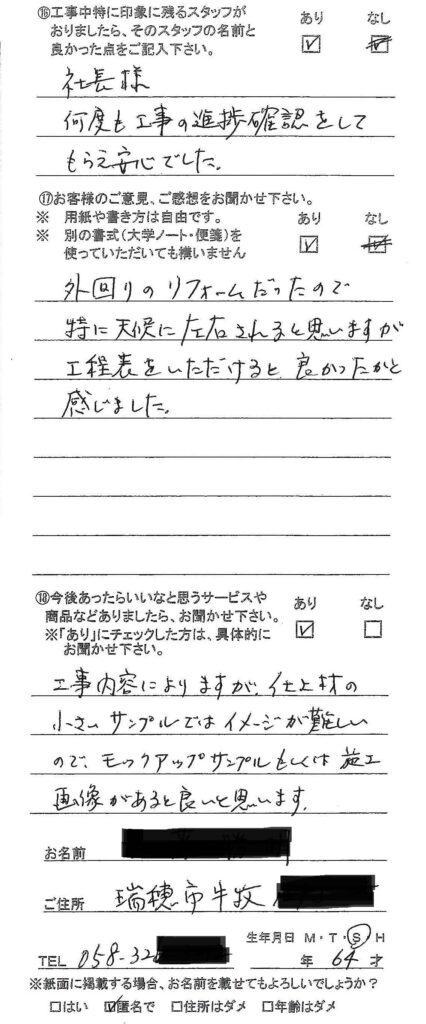 ⑯工事中特に印象に残るスタッフが
おりましたら、そのスタッフの名前と
良かった点をご記入下さい。
あり なし
☑ ☑
社長様
何度も工事の進捗確認をして
もらえ安心でした。
⑰お客様のご意見、ご感想をお聞かせ下さい。
※ 用紙や書き方は自由です。
※ 別の書式(大学ノート・便箋)を
使っていただいても構いません
あり なし
☑ ☑
外回りのリフォームだったので
特に天候に左右されると思いますが
工程表をいただけると良かったかと
感じました。
⑱今後あったらいいなと思うサービスや
商品などありましたら、お聞かせ下さい。
※「あり」にチェックした方は、具体的に
お聞かせ下さい。
あり なし
☑ □
工事内容によりますが、仕上材の
小さいサンプルではイメージが難しい
ので、モックアップサンプルもしくは施工
画像があると良いと思います。
お名前
ご住所 瑞穂市牛牧
生年月日 M・T・S・H
TEL 058-32 年 64 才
※紙面に掲載する場合、お名前を載せてもよろしいでしょうか？
□はい ☑匿名で □住所はダメ □年齢はダメ